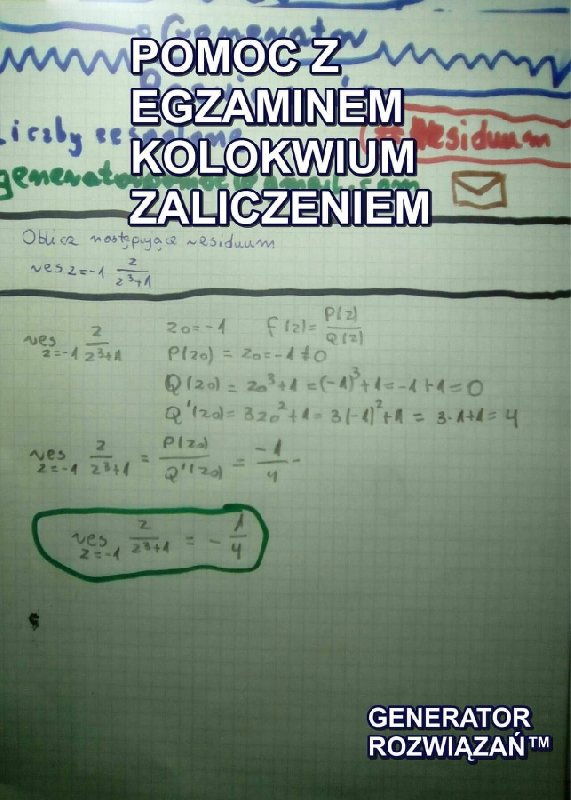 Generator
POMOC Z
EGZAMINEM
KOLOKWIUM
ZALICZENIEM
Liczby zespolone
#Residuum
Oblicz następujące residuum
res z=-1 z/(z³+1)
res z=-1 z/(z³+1) z₀=-1 f(z)=P(z)/Q(z)
P(z₀)=z₀=-1≠0
Q(z₀)=z₀³+1=(-1)³+1=-1+1=0
Q'(z₀)=3z₀²+1=3(-1)²+1=3·1+1=4
res z=-1 z/(z³+1) = P(z₀)/Q'(z₀) = -1/4
res z=-1 z/(z³+1) = -1/4
GENERATOR
ROZWIĄZAŃ™